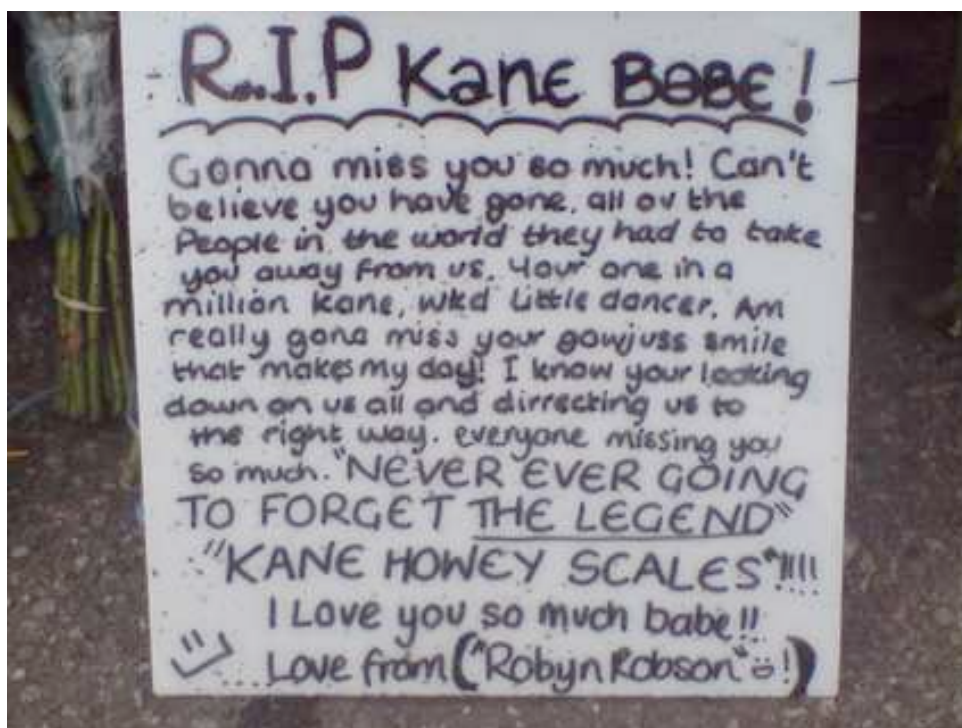 R.I.P Kane BABE!
Gonna miss you so much! Can't
believe you have gone. all ov the
People in the world they had to take
you away from us. Your one in a
million Kane, wkd Little dancer. Am
really gona miss your gowjuss smile
that makes my day! I know your looking
down on us all and dirrecting us to
the right way. everyone missing you
so much. "NEVER EVER GOING
TO FORGET THE LEGEND"
"KANE HOWEY SCALES"!!!!
I Love you so much babe!!
... Love from ("Robyn Robson" !)